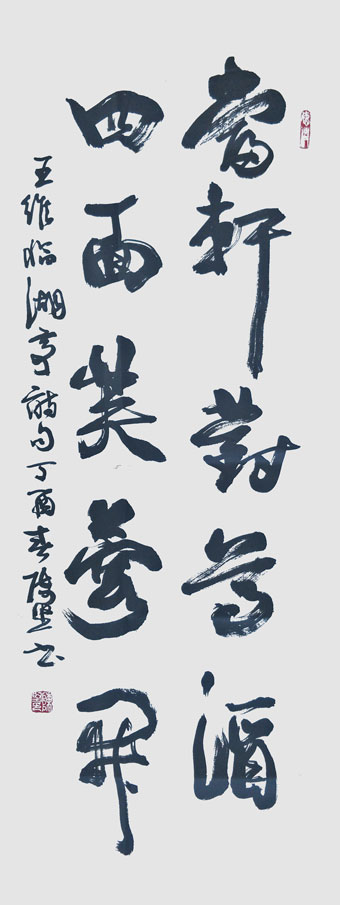 當軒對尊酒
四面芙蓉開
王維臨湖亭詩句丁酉春書